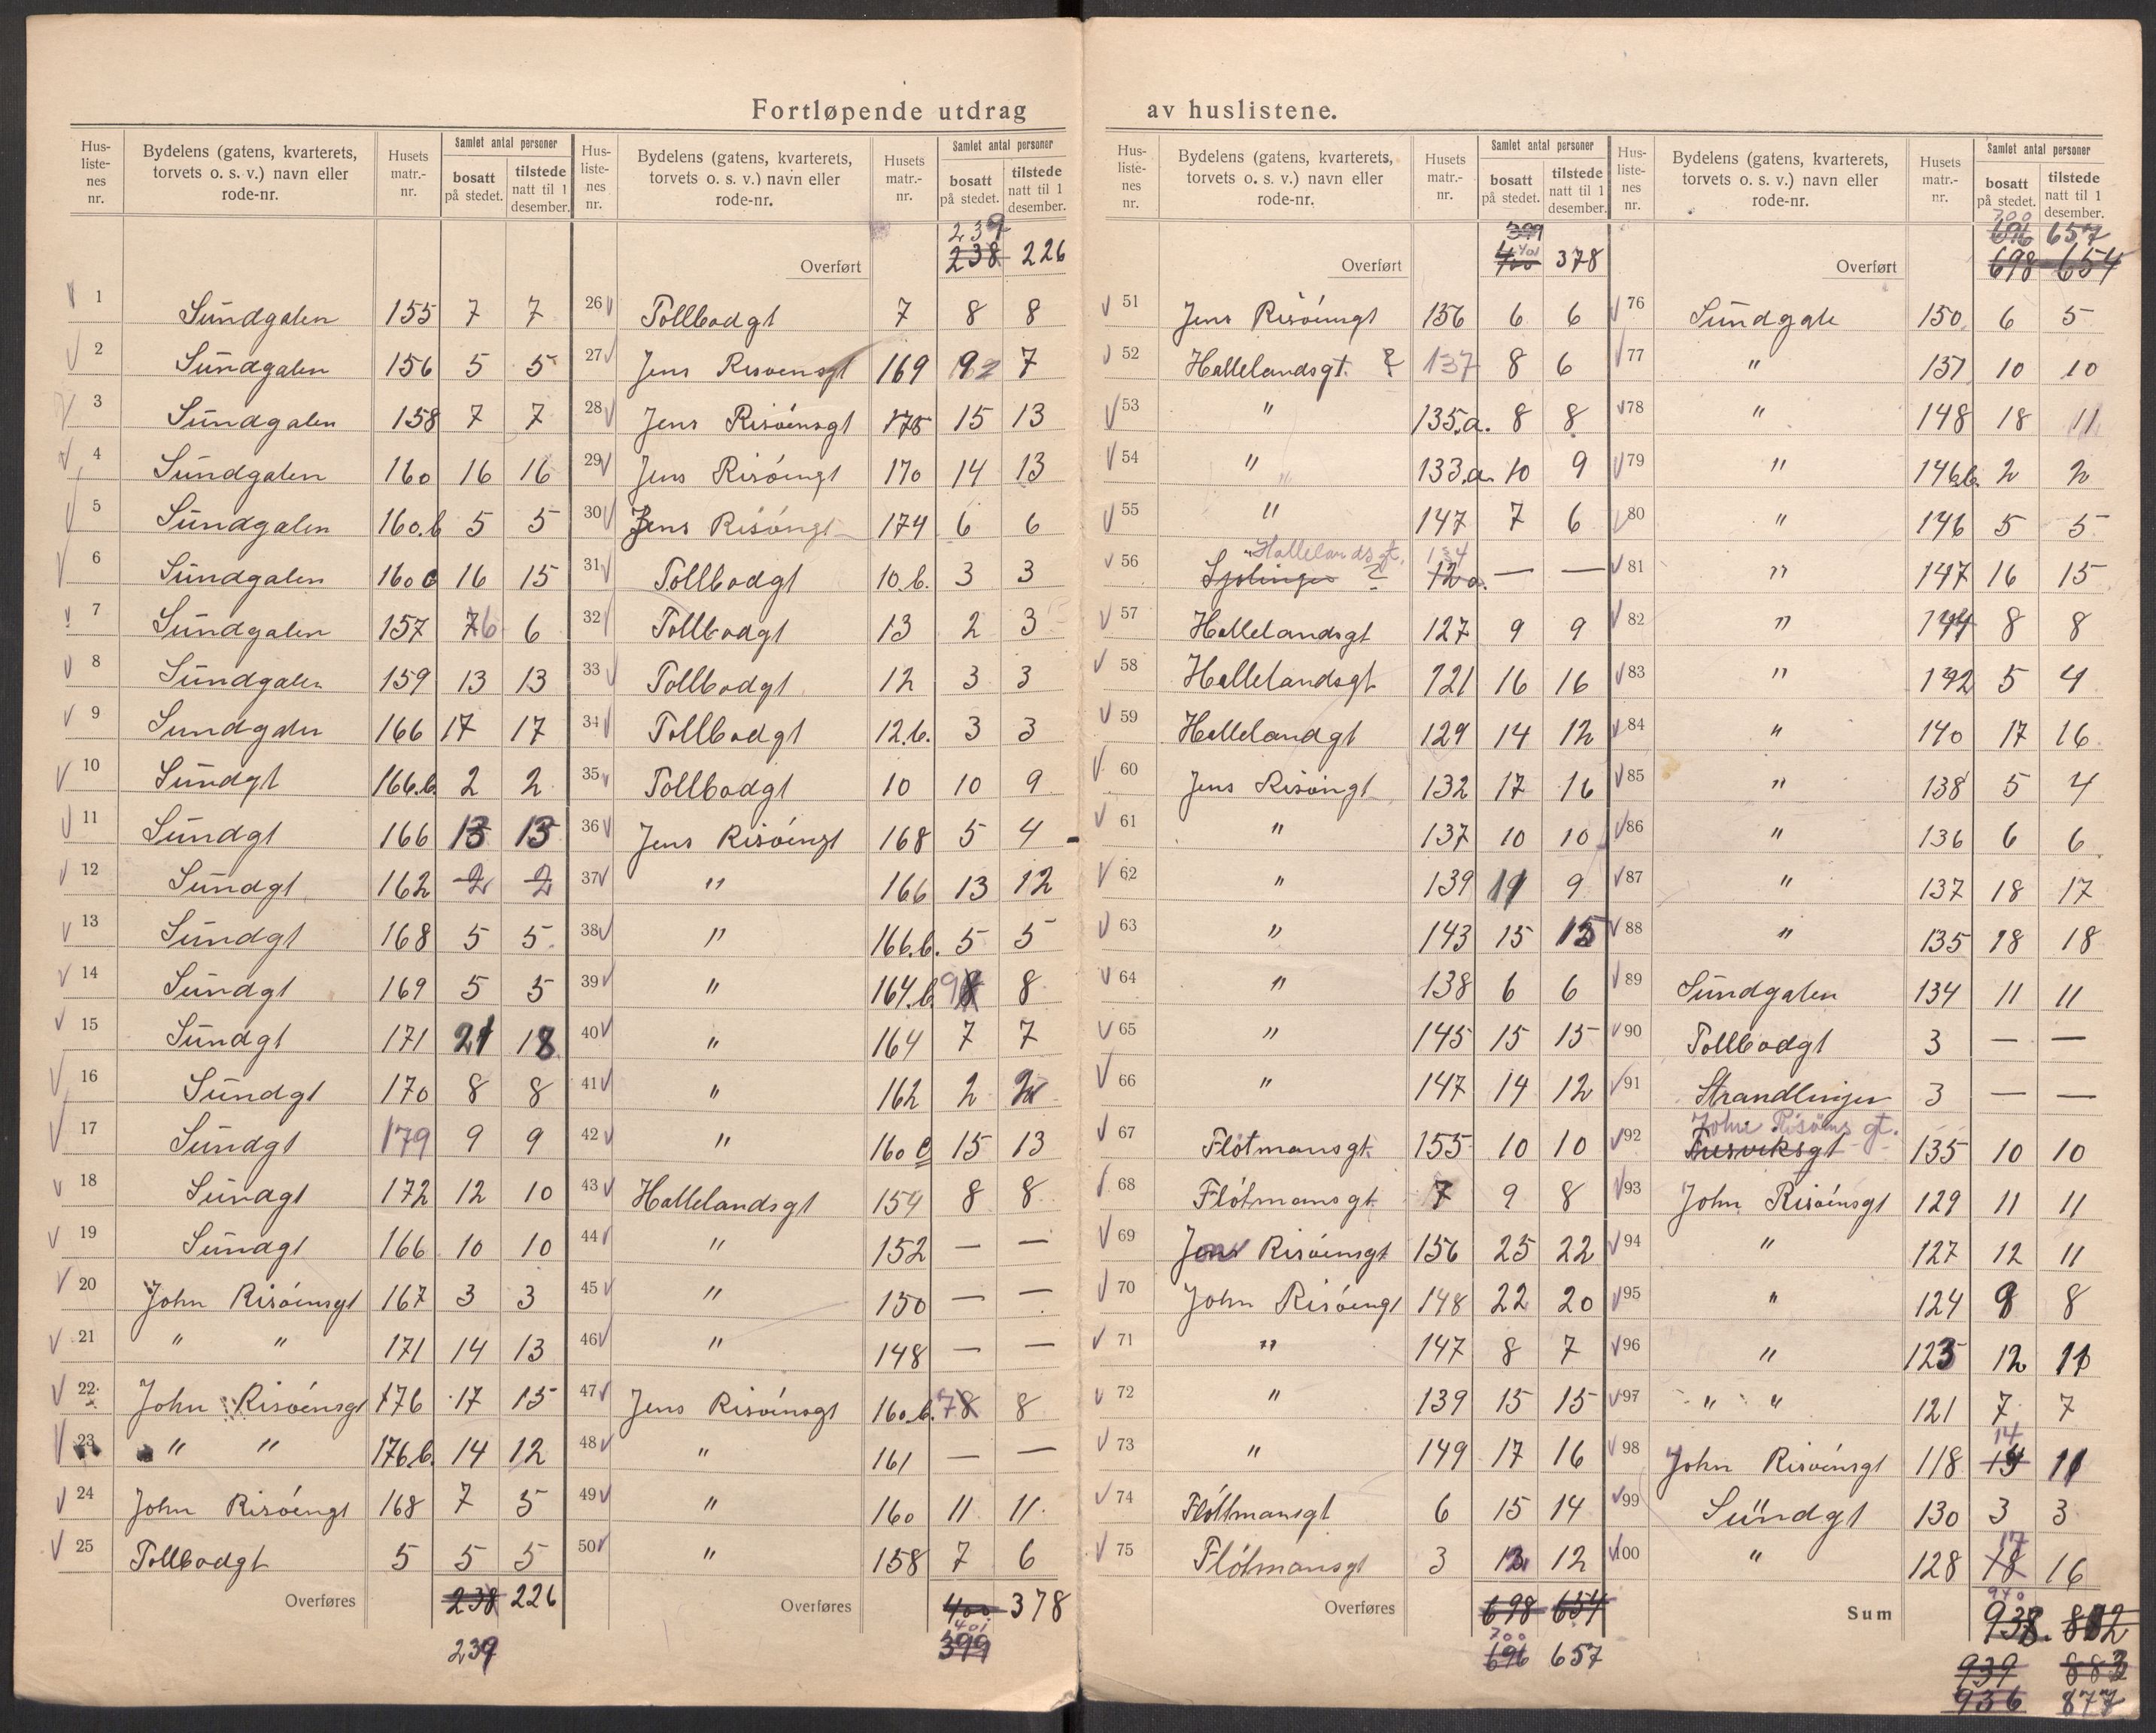 Fortløpende utdrag av huslistene.
Hus-listenes nr. | Bydelens (gatens, kvarterets, torvets o. s. v.) navn eller rode-nr. | Husets matr.-nr. | Samlet antal personer | bosatt på stedet. | tilstede natt til 1 desember.
1 Sundgaten 155 7 7
2 Sundgaten 156 5 5
3 Sundgaten 158 7 7
4 Sundgaten 160 16 16
5 Sundgaten 160.b 5 5
6 Sundgaten 160 c 16 15
7 Sundgaten 157 7 6 6
8 Sundgaten 159 13 13
9 Sundgaten 166 17 17
10 Sundgt 166.b. 2 2
11 Sundgt 166 13 13
12 Sundgt 162 2 2
13 Sundgt 168 5 5
14 Sundgt 169 5 5
15 Sundgt 171 21 18
16 Sundgt 170 8 8
17 Sundgt 179 9 9
18 Sundgt 172 12 10
19 Sundgt 166 10 10
20 John Risöensgt 167 3 3
21 " " 171 14 13
22 John Risöensgt 176 17 15
23 " " 176 b. 14 12
24 John Risöengt 168 7 5
25 Tollbodgt 5 5 5
Overføres 238 226
239
Hus-listenes nr. | Bydelens (gatens, kvarterets, torvets o. s. v.) navn eller rode-nr. | Husets matr.-nr. | Samlet antal personer | bosatt på stedet. | tilstede natt til 1 desember.
239
Overført 238 226
26 Tollbodgt 7 8 8
27 Jens Risoensgt 169 92 7
28 Jens Risöensgt 175 15 13
29 Jens Risöengt 170 14 13
30 Jens Risöngt 174 6 6
31 Tollbodgt 10.b. 3 3
32 Tollbodgt 13 2 3
33 Tollbodgt 12 3 3
34 Tollbodgt 12.b. 3 3
35 Tollbodgt 10 10 9
36 Jens Risöengt 168 5 4
37 " 166 13 12
38 " 166.b. 5 5
39 " 164.b 9 8 8
40 " 164 7 7
41 " 162 2 2
42 " 160 c 15 13
43 Hallelandsgt 154 8 8
44 " 152 — —
45 " 150 — —
46 " 148 — —
47 Jens Risöensgt 160.b. 7 8 8
48 " 161 — —
49 " 160 11 11
50 " 158 7 6
Overføres 400 378
401
399
Hus-listenes nr. | Bydelens (gatens, kvarterets, torvets o. s. v.) navn eller rode-nr. | Husets matr.-nr. | Samlet antal personer | bosatt på stedet. | tilstede natt til 1 desember.
399
401
Overført 400 378
51 Jens Risöengt 156 6 6
52 Hallelandsgt. ? 137 8 6
53 " 135.a. 8 8
54 " 133.a. 10 9
55 " 147 7 6
Hallelandsgt. 134
56 12 a. — —
57 Hallelandsgt 127 9 9
58 Hallelandsgt 121 16 16
59 Hallelandgt 129 14 12
60 Jens Risöingt 132 17 16
61 " 137 10 10
62 " 139 11 9
63 " 143 15 15
64 " 138 6 6
65 " 145 15 15
66 " 147 14 12
67 Flötmansgt. 155 10 10
68 Flötmansgt. 7 9 8
69 Jens Risöensgt 156 25 22
70 John Risöengt 148 22 20
71 " 147 8 7
72 " 139 15 15
73 " 149 17 16
74 Flöttmansgt 6 15 14
75 Flötmansgt 3 13 12
Overføres 698 654
700
696 657
Hus-listenes nr. | Bydelens (gatens, kvarterets, torvets o. s. v.) navn eller rode-nr. | Husets matr.-nr. | Samlet antal personer | bosatt på stedet. | tilstede natt til 1 desember.
700
696 657
Overført 698 654
76 Sundgate 150 6 5
77 " 151 10 10
78 " 148 18 11
79 " 146.b. 2 2
80 " 146 5 5
81 " 147 16 15
82 " 144 8 8
83 " 142 5 4
84 " 140 17 16
85 " 138 5 4
86 " 136 6 6
87 " 137 18 17
88 " 135 18 18
89 Sundgaten 134 11 11
90 Tollbodgt 3 — —
91 Strandlinjen 3 — —
John Risöens gt.
92 135 10 10
93 John Risöensgt 129 11 11
94 " 127 12 11
95 " 124 9 8
96 " 123 12 11
97 " " 121 7 7
14
98 John Risöensgt 118 11
99 Sundgt 130 3 3
17
100 " 128 18 16
940
Sum 938. 882
939 883
936 877